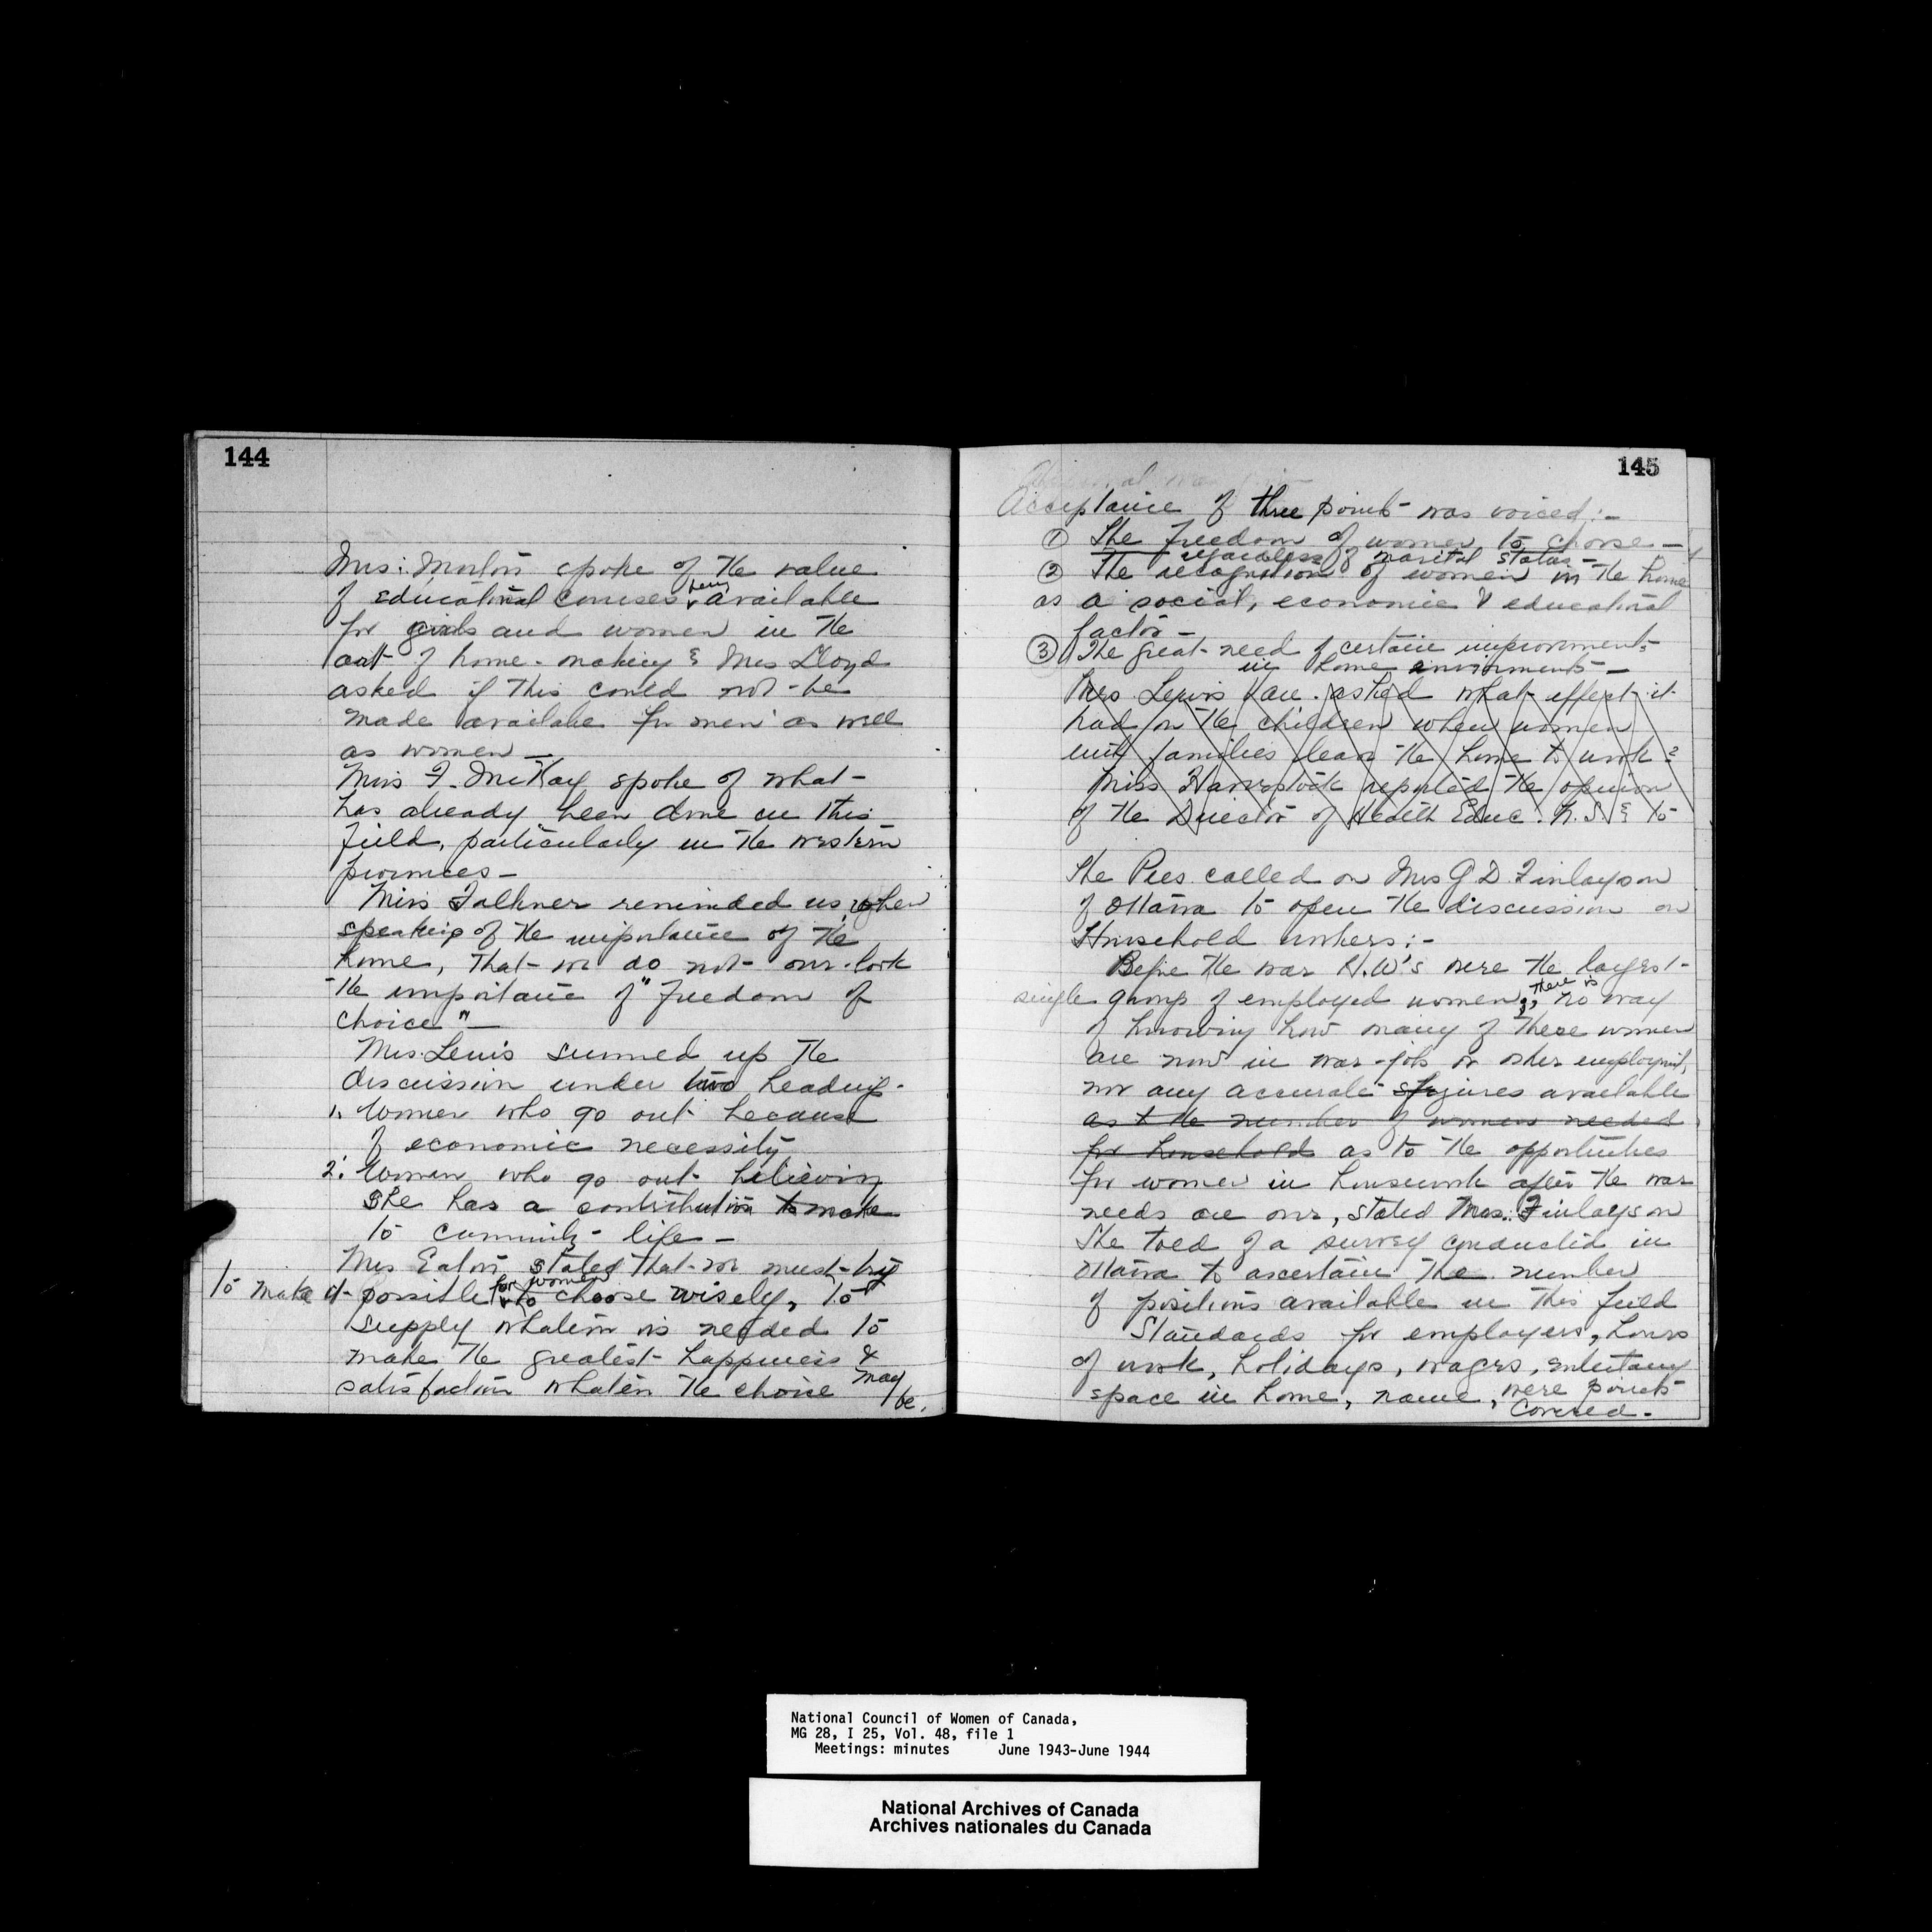 144
Mrs. Morton spoke of the value
of educational courses being available
for girls and women in the
art of home-making & Mrs Lloyd
asked if this could not be
made availabe for men as well
as women —
Miss F. McKay spoke of what
has already been done in this
field, particularly in the western
provinces —
Miss Falkner reminded us, when
speaking of the importance of the
home, that we do not over-look
the importance of "freedom of
choice" —
Mrs. Lewis summed up the
discussion under two headings -
1. Women who go out because
of economic necessity
2. Women who go out believing
she has a contribution to make
to community life —
Mrs Eaton stated that we must try
to make it possible for women to choose wisely, to
supply whatever is needed to
make the greatest happiness &
satisfaction whatever the choice may
be.
145
Acceptance of three points was voiced :-
① The freedom of women to choose —
regardless of marital status —
② The recognition of women in the home
as a social, economic & educational
factor —
③ The great need of certain improvements
in home environments —
Mrs. Lewis asked what effect it
had on the children when women
with families leave the home to work?
Miss Haverstock reported the opinion
of the Director of Health Educ. N.S. & to
The Pres. called on Mrs G D. Finlayson
of Ottawa to open the discussion on
Household workers :-
Before the war H.W's were the largest
single group of employed women, there is no way
of knowing how many of these women
are now in war-jobs or other employment,
nor any accurate figures available
as to the number of women needed
for households as to the opportunities
for women in housework after the war
needs are over, stated Mrs. Finlayson
She told of a survey conducted in
Ottawa to ascertain the number
of positions available in this field
Standards for employers, hours
of work, holidays, wages,
space in home, name, were points
covered.
National Council of Women of Canada,
MG 28, I 25, Vol. 48, file 1
Meetings: minutes June 1943-June 1944
National Archives of Canada
Archives nationales du Canada